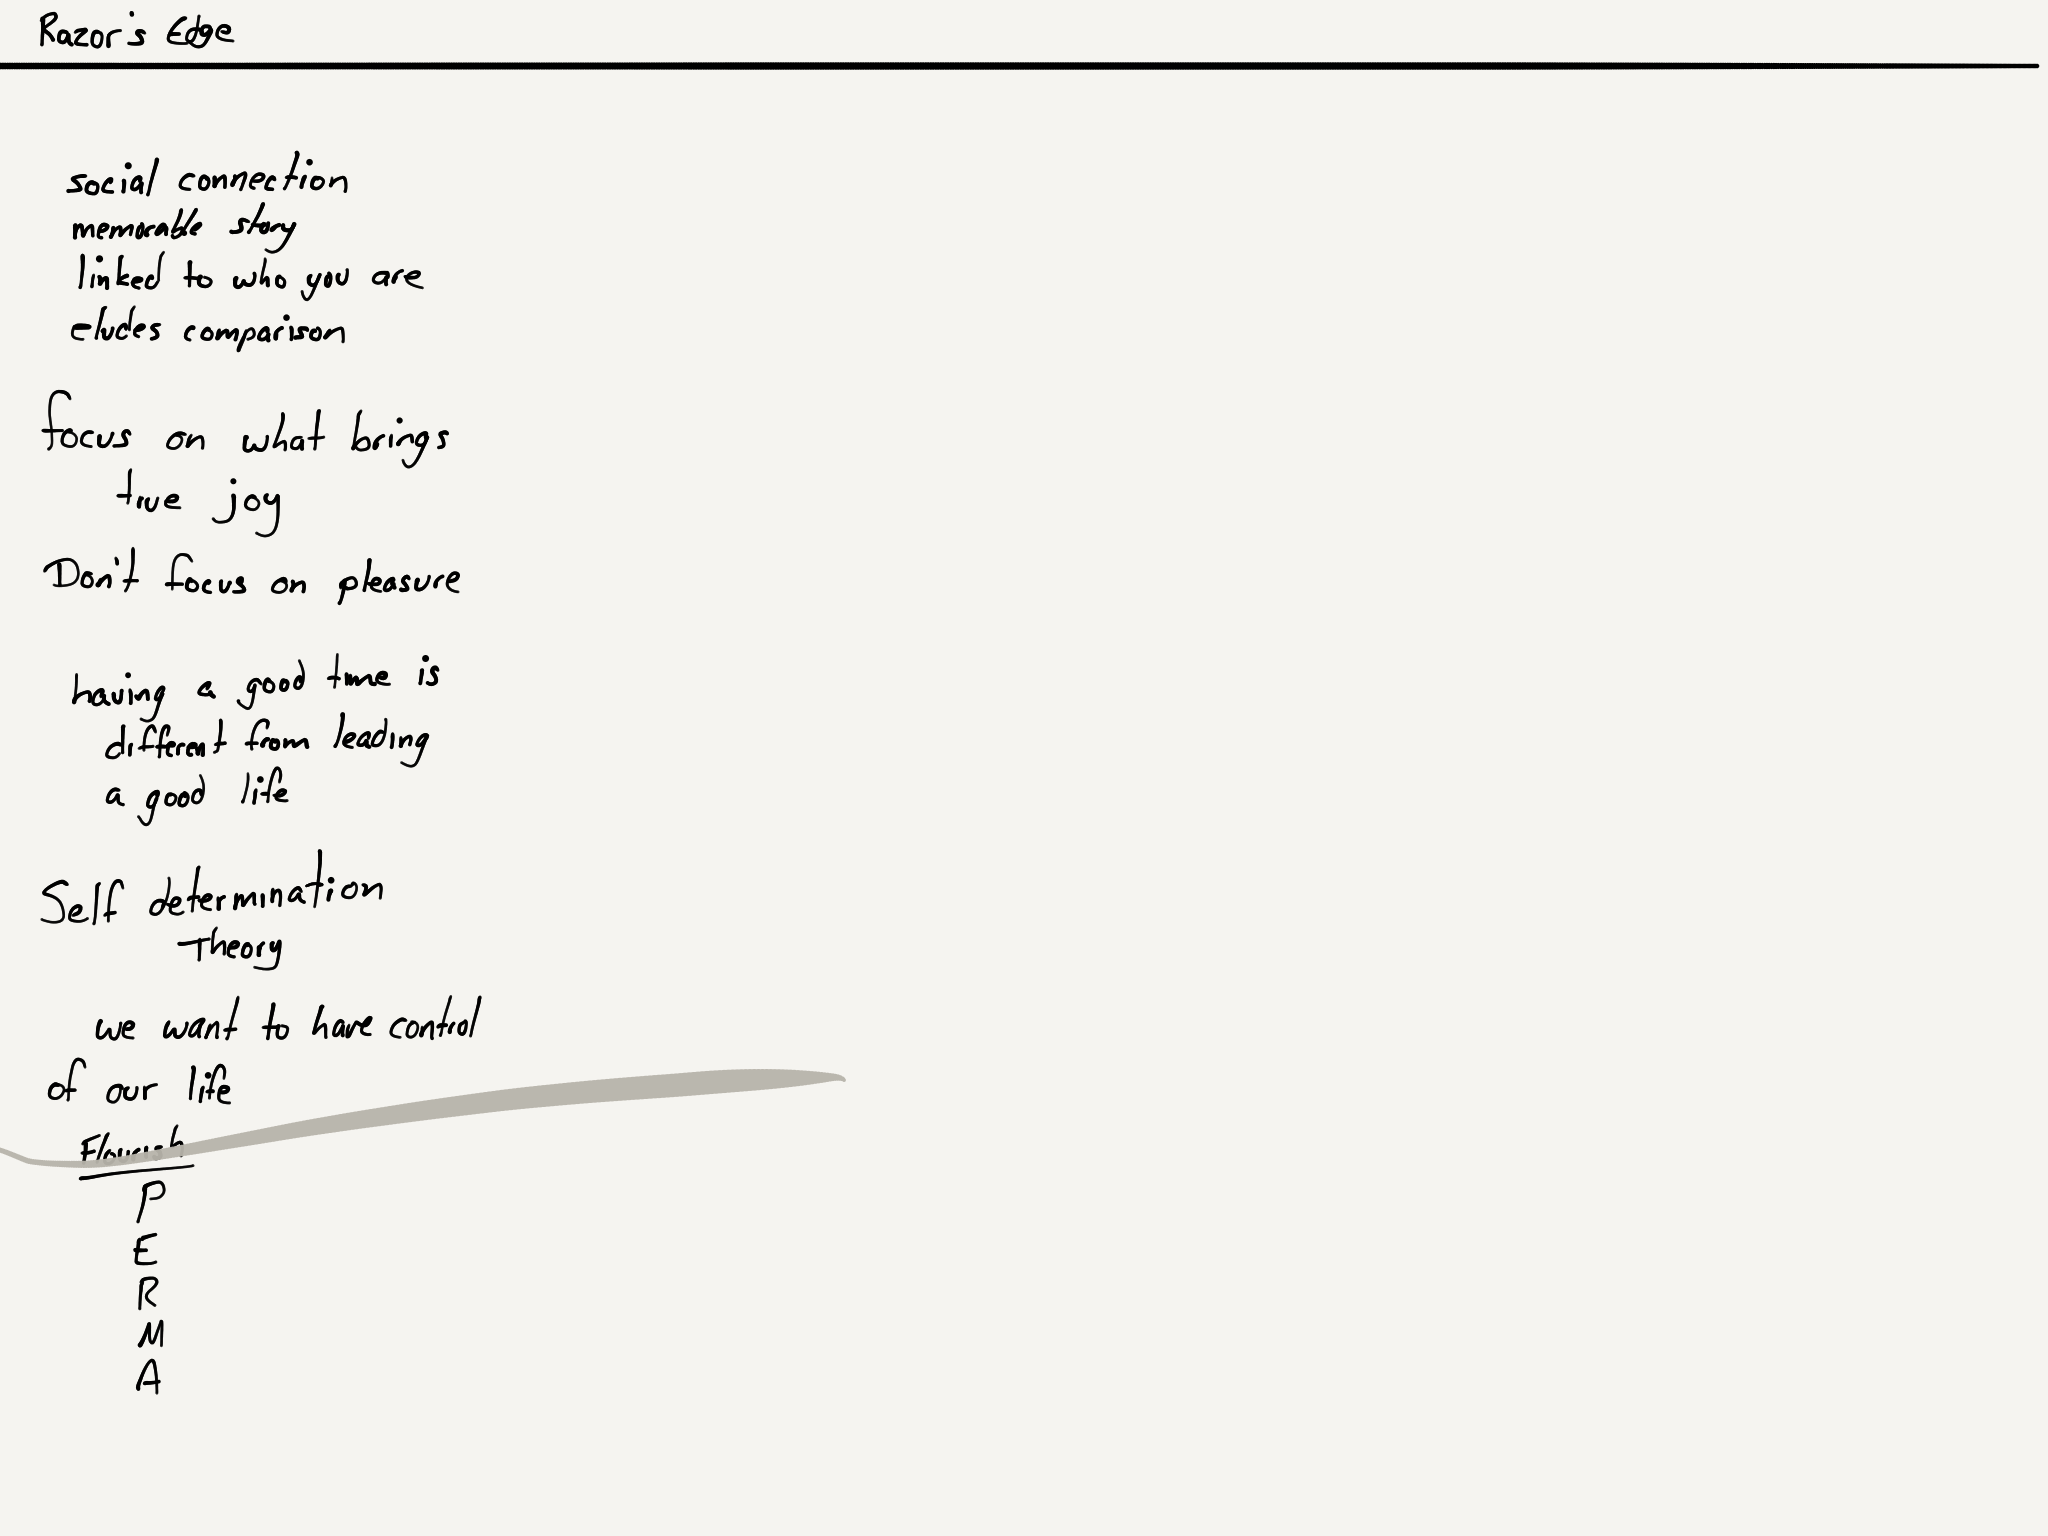 Razor's Edge
social connection
memorable story
linked to who you are
eludes comparison
focus on what brings
true joy
Don't focus on pleasure
having a good time is
different from leading
a good life
Self determination
Theory
we want to have control
of our life
Flourish
P
E
R
M
A